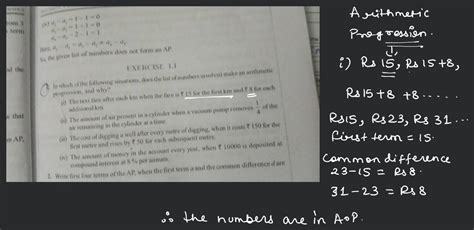 a₃ - a₂ = 1 - 1 = 0
a₄ - a₃ = 3 - 1 = 0
- 2 - 1 = 1
Here,
So, the given list of numbers does not form an AP.
EXERCISE 1.1
1. In which of the following situations, does the list of numbers involved make an arithmetic
progression, and why?
(i) The taxi fare after each km when the fare is ₹ 15 for the first km and ₹ 8 for each
additional km.
(ii) The amount of air present in a cylinder when a vacuum pump removes 1/4 of the
air remaining in the cylinder at a time.
(iii) The cost of digging a well after every metre of digging, when it costs ₹ 150 for the
first metre and rises by ₹ 50 for each subsequent metre.
(iv) The amount of money in the account every year, when ₹ 10000 is deposited at
compound interest at 8 % per annum.
2. Write first four terms of the AP, when the first term a and the common difference d are
Arithmetic
Progression.
i) Rs 15, Rs 15+8,
Rs15+8 +8 -----
Rs15, Rs23, Rs 31...
first term = 15.
Common difference
23-15 = Rs8
31-23 = Rs8
∴ the numbers are in A.P.